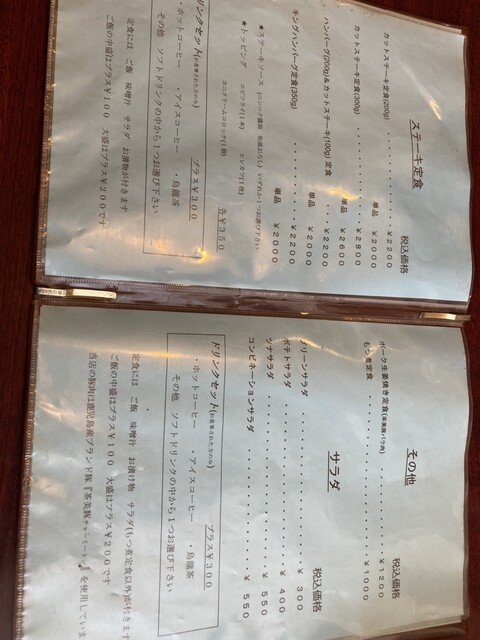 ステーキ定食
税込価格
カットステーキ定食(200g) ・・・・・・・・￥２２００
単品 ￥２０００
カットステーキ定食(300g) ・・・・・・・・￥２８００
単品 ￥２６００
ハンバーグ(200g)&カットステーキ(100g) 定食 ￥２２００
単品 ￥２０００
キングハンバーグ定食(350g) ・・・・・・・￥２２００
単品 ￥２０００
★ステーキソース (ニンニク醤油 和風おろし) いずれか１つお選び下さい
★トッピング エビフライ(1本) ヒレカツ(1枚)
カニクリームコロッケ(1個) 各￥３５０
ドリンクセット(お食事された方のみ) プラス￥３００
・ホットコーヒー ・アイスコーヒー ・烏龍茶
その他 ソフトドリンクの中から１つお選び下さい
定食には ご飯 味噌汁 サラダ お漬物が付きます
ご飯の中盛はプラス￥１００ 大盛はプラス￥２００です
その他
税込価格
ポーク生姜焼き定食(茶美豚バラ肉) ・・・・￥１２００
もつ煮定食 ・・・・・・・・・・￥１０００
サラダ
税込価格
グリーンサラダ ・・・・・・・・・・￥ ３００
ポテトサラダ ・・・・・・・・・・￥ ４００
ツナサラダ ・・・・・・・・・・￥ ５５０
コンビネーションサラダ ・・・・・・・￥ ５５０
ドリンクセット(お食事された方のみ) プラス￥３００
・ホットコーヒー ・アイスコーヒー ・烏龍茶
その他 ソフトドリンクの中から１つお選び下さい
定食には ご飯 味噌汁 お漬け物 サラダ(もつ煮定食以外)が付きます
ご飯の中盛はプラス￥１００ 大盛はプラス￥２００です
当店の豚肉は鹿児島産ブランド豚『茶美豚
を使用していま